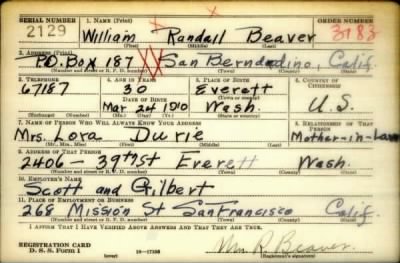 SERIAL NUMBER 1. NAME (Print) ORDER NUMBER
2129 William Randall Beaver 3783
(First) (Middle) (Last)
2. ADDRESS (Print)
P.O. Box 187 San Berndadino, Calif.
(Number and street or R. F. D. number) (Town) (County) (State)
3. TELEPHONE 4. AGE IN YEARS 5. PLACE OF BIRTH 6. COUNTRY OF CITIZENSHIP
67187 30 Everett
DATE OF BIRTH (Town or county)
Mar 24 1910 Wash. U.S.
(Exchange) (Number) (Mo.) (Day) (Yr.) (State or country)
7. NAME OF PERSON WHO WILL ALWAYS KNOW YOUR ADDRESS 8. RELATIONSHIP OF THAT PERSON
Mrs. Lora Durie Mother-in-Law
(Mr., Mrs., Miss) (First) (Middle) (Last)
9. ADDRESS OF THAT PERSON
2406 - 39th St Everett Wash.
(Number and street or R. F. D. number) (Town) (County) (State)
10. EMPLOYER'S NAME
Scott and Gilbert
11. PLACE OF EMPLOYMENT OR BUSINESS
268 Mission St San Francisco Calif.
(Number and street or R. F. D. number) (Town) (County) (State)
I AFFIRM THAT I HAVE VERIFIED ABOVE ANSWERS AND THAT THEY ARE TRUE.
REGISTRATION CARD
D. S. S. Form 1 16-17105 Wm. R. Beaver
(Registrant's signature)